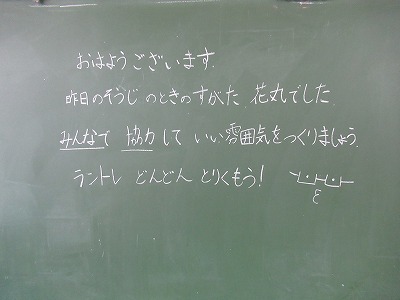 おはようございます.
昨日のそうじのときのすがた 花丸でした
みんなで 協力して いい雰囲気をつくりましょう.
ラントレ どんどん とりくもう!